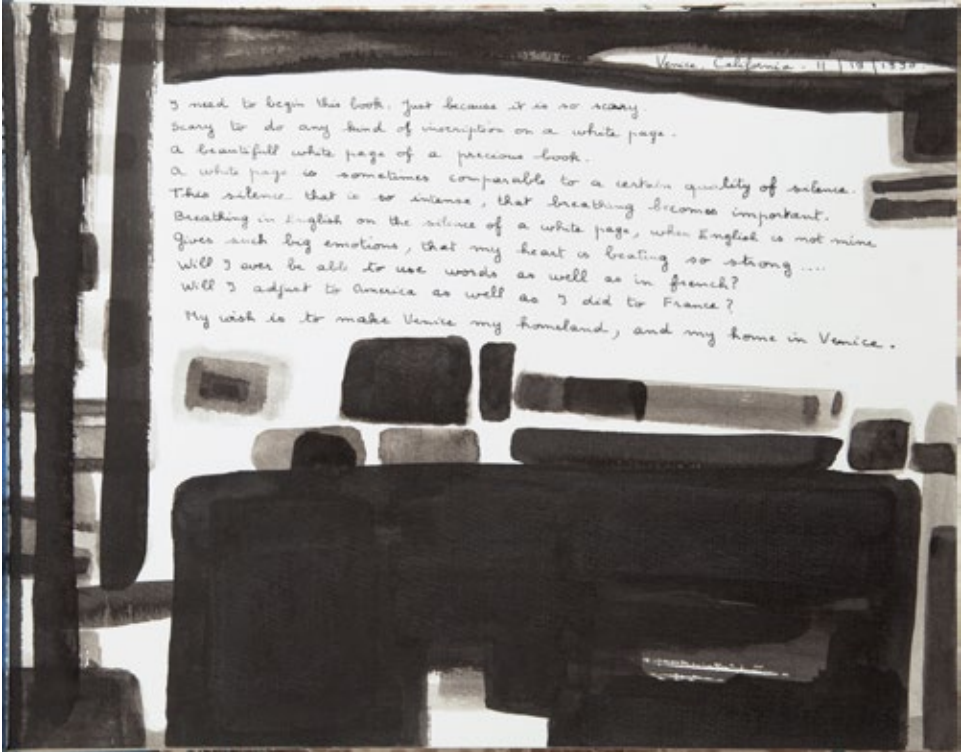 Venice, California - 11 / 18 /
I need to begin this book. Just because it is so scary.
Scary to do any kind of inscription on a white page.
a beautifull white page of a precious book.
a white page is sometimes comparable to a certain quality of silence.
This silence that is so intense, that breathing becomes important.
Breathing in English on the silence of a white page, when English is not mine
Gives such big emotions, that my heart is beating so strong ....
Will I ever be able to use words as well as in french?
Will I adjust to America as well as I did to France?
My wish is to make Venice my homeland, and my home in Venice.